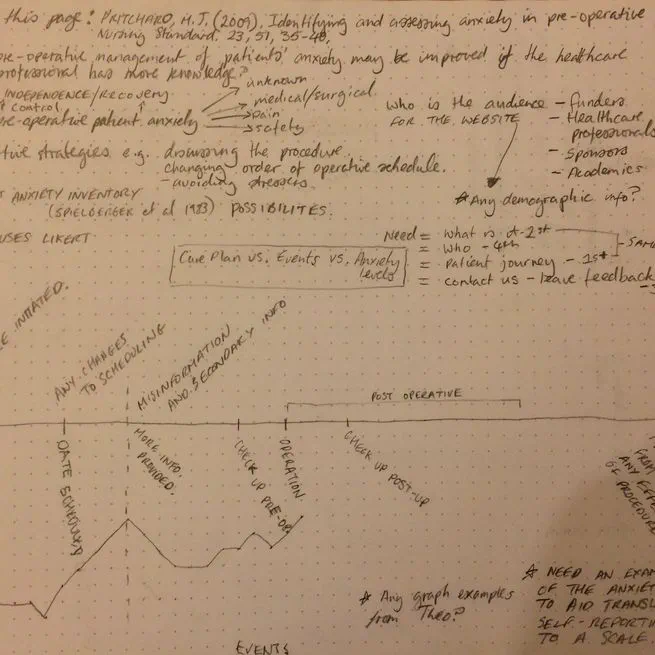 this page: PRITCHARD, M.J. (2009). Identifying and assessing anxiety in pre-operative
Nursing Standard, 23, 51, 35-40.
pre-operative management of patients' anxiety may be improved if the healthcare
professional has more knowledge?
INDEPENDENCE/RECOVERY
control
pre-operative patient anxiety
unknown
medical/surgical
pain
safety
strategies e.g. discussing the procedure.
changing order of operative schedule.
- avoiding stressors
ANXIETY INVENTORY
(SPIELBERGER et al 1983) POSSIBILITES.
USES LIKERT
who is the audience
FOR THE WEBSITE
- Funders
- Healthcare
professionals
- Sponsors
- Academics
* Any demographic info?
Need = what is it - 2nd
= who - 4th
= patient journey - 1st
= contact us - leave feedback
Care Plan vs. Events vs. Anxiety
levels
INITIATED.
ANY CHANGES
TO SCHEDULING
MISINFORMATION
AND SECONDARY INFO
POST OPERATIVE
DATE SCHEDULED
MORE INFO
PROVIDED.
CHECK UP PRE-OP
OPERATION
CHECK UP POST-UP
FROM
ANY
OF PROCEDURE
* Any graph examples
from Theo?
* NEED AN
OF THE
TO AID
SELF-
TO A SCALE.
EVENTS